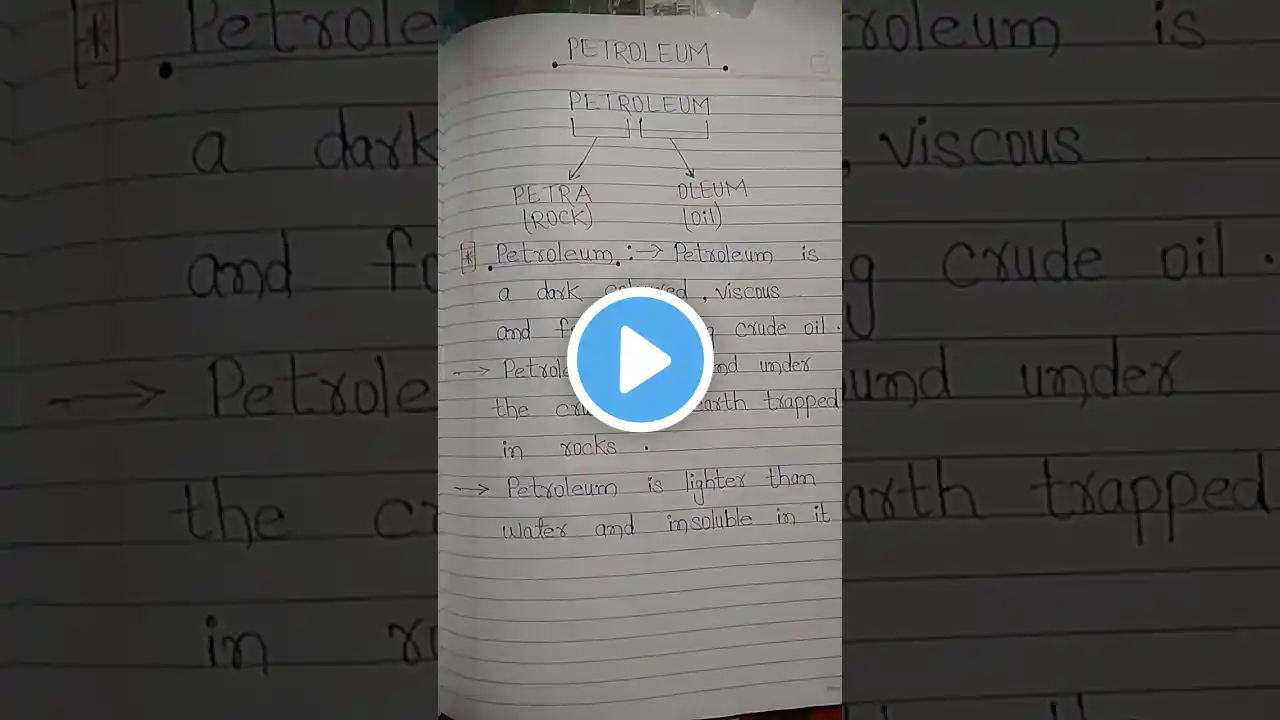 PETROLEUM
PETROLEUM
PETRA OLEUM
(ROCK) (Oil)
[*] Petroleum :→ Petroleum is
a dark , viscous
and crude oil .
→ under
the earth trapped
in rocks .
→ Petroleum is lighter than
water and insoluble in it